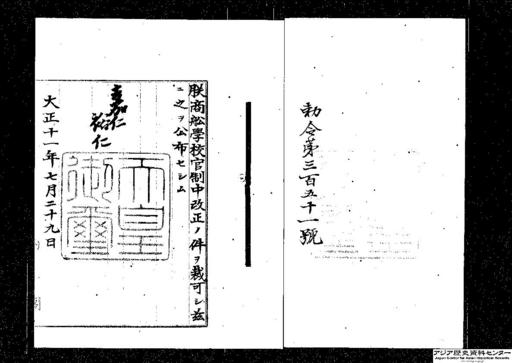 勅令第三百五十一號
朕商船學校官制中改正ノ件ヲ裁可シ茲
ニ之ヲ公布セシム
嘉仁
裕仁
天皇御璽
大正十一年七月二十九日
アジア歴史資料センター
Japan Center for Asian Historical Records